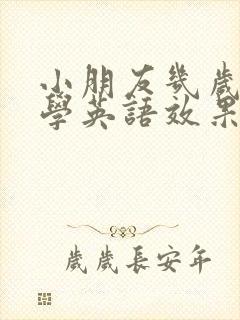 小朋友幾歲
學英語效果
歲歲長安年